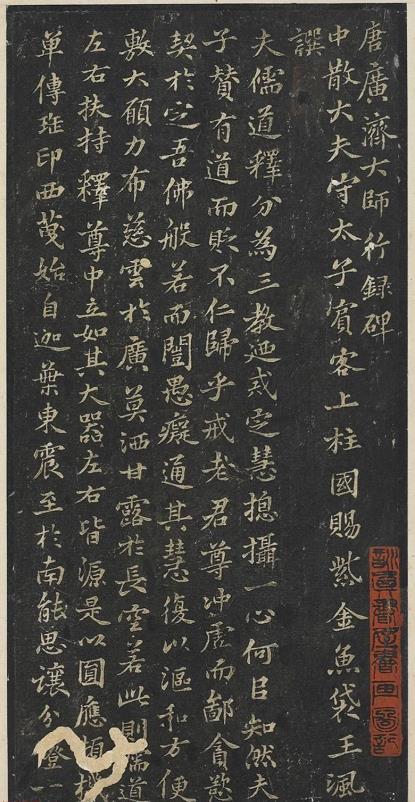 唐廣濟大師行録碑
中散大夫守太子賓客上柱國賜紫金魚袋王渢
譔
夫儒道釋分為三教迆戒定慧揔攝一心何㠯知然夫
子賛有道而貶不仁歸乎戒老君尊冲虛而鄙貪慾
契於定吾佛般若而闓愚癡通其慧復以漚和方便
敷大願力布慈雲於廣莫洒甘露於長空若此則儒道
左右扶持釋尊中立如其大器左右皆源是以圓應頓機
單傳珽印西蔑始自迦葉東震至於南能思讓分燈一